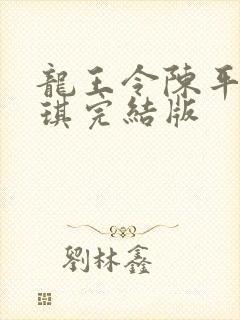 龍王令陳平
琪完結版
劉林鑫